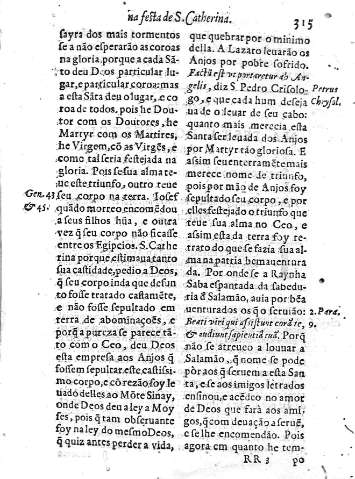 na festa de S. Catherina.
315
sayra dos mais tormentos
se a não esperarão as coroas
na gloria. porque a cada Sã-
to deu Deos particular lu-
gar, e particular coroa: mas
a esta Sãta deu o lugar, e co
roa de todos, pois he Dou-
tor com os Doutores, he
Martyr com os Martires,
he Virgem, cõ as Virgẽs, e
como tal seria festejada na
gloria. Pois se sua alma te-
ue este triufo, outro teue
seu corpo na terra. Iosef
quãdo morreo, encomẽdou
a seus filhos hũa, e outra
vez q̃ seu corpo não ficasse
entre os Egipcios. S. Cathe
rina porque estimaua tanto
sua castidade, pedio a Deos,
q̃ seu corpo inda que defun
to fosse tratado castamẽte,
e não fosse sepultado em
terra de abominações, e
porq̃ a pureza se parece tã-
to com o Ceo, deu Deos
esta empresa aos Anjos q̃
fossem sepultar este castissi-
mo corpo, e cõ rezão foy le
uado delles ao Mõte Sinay,
onde Deos deu a ley a Moy
ses, pois q̃ tam obseruante
foy na ley do mesmo Deos,
q̃ quiz antes perder a vida,
Gen. 43
& 45.
que quebrar por o minimo
della. A Lazaro leuarão os
Anjos por pobre sofrido.
Factũ est vt portaretur ab An-
gelis, diz S. Pedro Crisolo-
go, e que cada hum deseja
ua de o leuar de seu cabo:
quanto mais merecia esta
Santa ser leuada dos Anjos
por Martyr tão gloriosa. E
assim seu enterramẽte mais
merece nome de triunfo,
pois por mão de Anjos foy
sepultado seu corpo, e por
elles festejado o triunfo que
teue sua alma no Ceo, e
assim esta da terra foy re-
trato do que se fazia sua al-
ma na patria bemauentura
da. Por onde se a Raynha
Saba espantada da sabedu-
ria d Salamão, auia por bẽa
uenturados os q̃ o seruião:
Beati viri qui assistunt corã te,
& audiunt sapientiã tuã. Porq̃
não se atreueo a louuar a
Salamão, q̃ nome se pode
por aos q̃ seruem a esta San
ta, e se aos imigos letrados
ensinou, e acẽdeo no amor
de Deos que fará aos ami-
gos, q̃ com deuação a seruẽ,
e se lhe encomendão. Pois
agora em quanto he tem-
Petrus
Chrysol.
2. Para.
9.
RR 3
po